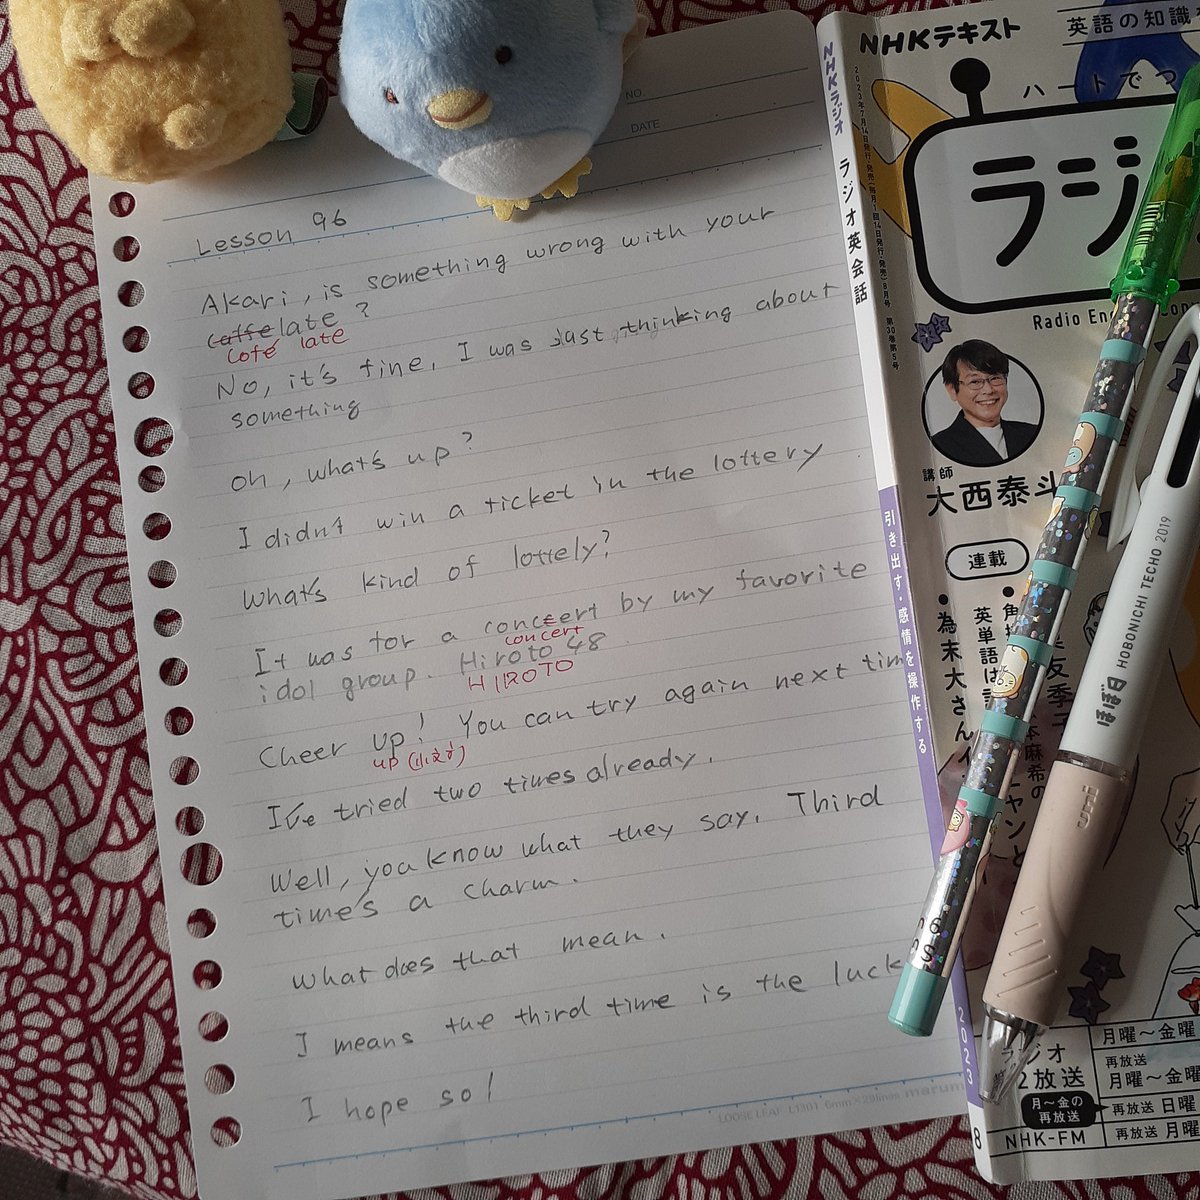 NO.
DATE
Lesson 96
Akari, is something wrong with your
caffelate?
Cofé late
No, it's fine, I was just thinking about
something
Oh, what's up?
I didn't win a ticket in the lottery
What's kind of lottely?
It was for a concert by my favorite
concert
idol group. Hiroto 48
HIROTO
Cheer up! You can try again next tim
up (小文字)
I've tried two times already.
Well, you know what they say. Third
time's a charm.
What does that mean.
I means the third time is the luck
I hope so!
LOOSE LEAF L1301 6mm×29lines marum
NHKラジオ ラジオ英会話
2023年7月14日発行・発売(毎月1回14日発行・発売)8月号 第30巻第5号
引き出す・感情を操作する
2023
8
NHKテキスト
英語の知識
ハートでつ
ラジ
Radio En Con
講師
大西泰斗
連載
英単語は
本麻希の
・為末大さん
ヤンと
ほぼ日 HOBONICHI TECHO 2019
uni
ラジオ
2放送
月曜〜金曜
再放送
月曜〜金曜
月〜金の
再放送
再放送 日曜
NHK-FM
再放送 月曜